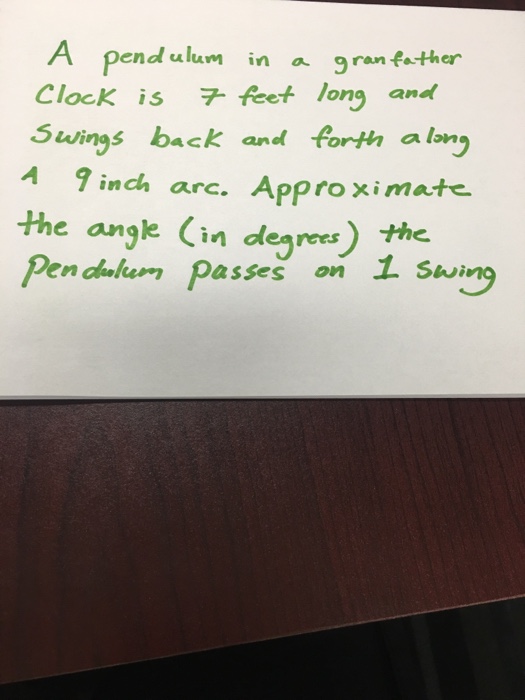 A pendulum in a granfather
Clock is 7 feet long and
Swings back and forth along
A 9 inch arc. Approximate
the angle (in degrees) the
Pendulum Passes on 1 Swing